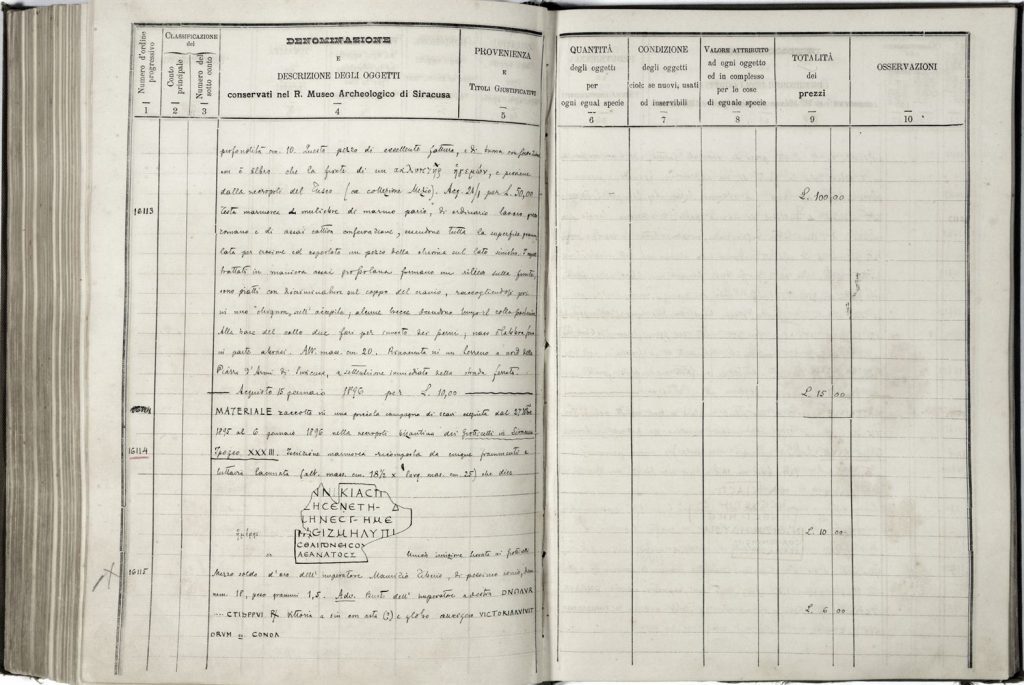 Numero d'ordine progressivo
1
CLASSIFICAZIONE del
Conto principale
2
Numero del sotto conto
3
DENOMINAZIONE
E
DESCRIZIONE DEGLI OGGETTI
conservati nel R. Museo Archeologico di Siracusa
4
PROVENIENZA
E
TITOLI GIUSTIFICATIVI
5
profondità cm. 10. Questo pezzo di eccellente fattura, e di buona
non è altro che la
dalla necropoli del Fusco (ex collezione Mezio). Acq. 24/1 per L. 50,00
16113
Testa marmorea muliebre di marmo pario, di ordinario lavoro
romano e di assai cattiva conservazione, essendone tutta la superficie
per erosione ed asportato un pezzo della sul lato sinistro.
trattati in maniera assai grossolana formano un rilievo sulla fronte,
sono piatti con discriminatura sul coppo del cranio, raccogliendosi poi
in uno chignon, sull'occipite, alcune trecce scendono lungo il collo
Alla base del collo due fori per innesto dei perni, naso e labbra
in parte abrasi. Alt. mass. cm 20. Rinvenuta in un terreno a nord della
Piazza d'Armi di Siracusa, a settentrione immediato della strada ferrata.
Acquisto 15 gennaio 1896 per L. 10,00
MATERIALE raccolto in una piccola campagna di scavi eseguita dal 27
1895 al 6 gennaio 1896 nella necropoli bizantina dei Grotticelli in Siracusa
16114
Ipogeo XXXIII. Iscrizione marmorea ricomposta da cinque frammenti e
tuttavia lacunata (alt. mass. cm. 18½ x larg. mas. cm. 25) che dice
ΙΝ ΚΙΑCΠ
ΗCΕΝΕΤΗ-
ΗΝΕCΓ-ΗΜΕ
CΙΖΜΗΛΥΠΙ
CΘΑΙΠΟΝΕΙCΟ
ΑΘΑΝΑΤΟCΣ
Unica iscrizione trovata ai Grotticelli
16115
Mezzo soldo d'oro dell'imperatore Maurizio Tiberio, di pessimo conio,
mm. 18, peso grammi 1,5. Adv. Busto dell'imperatore a destra DNMAVR
... CTIBPPVI R/ Vittoria a sin con asta (?) e globo crucigero VICTORIAAVIVIT
ORVM u CONOA
QUANTITÀ
degli oggetti
per
ogni egual specie
6
CONDIZIONE
degli oggetti
cioè: se nuovi, usati
od inservibili
7
VALORE ATTRIBUITO
ad ogni oggetto
od in complesso
per le cose
di eguale specie
8
TOTALITÀ
dei
prezzi
9
OSSERVAZIONI
10
L. 100,00
L. 15 00
L. 10 00
L. 6 00